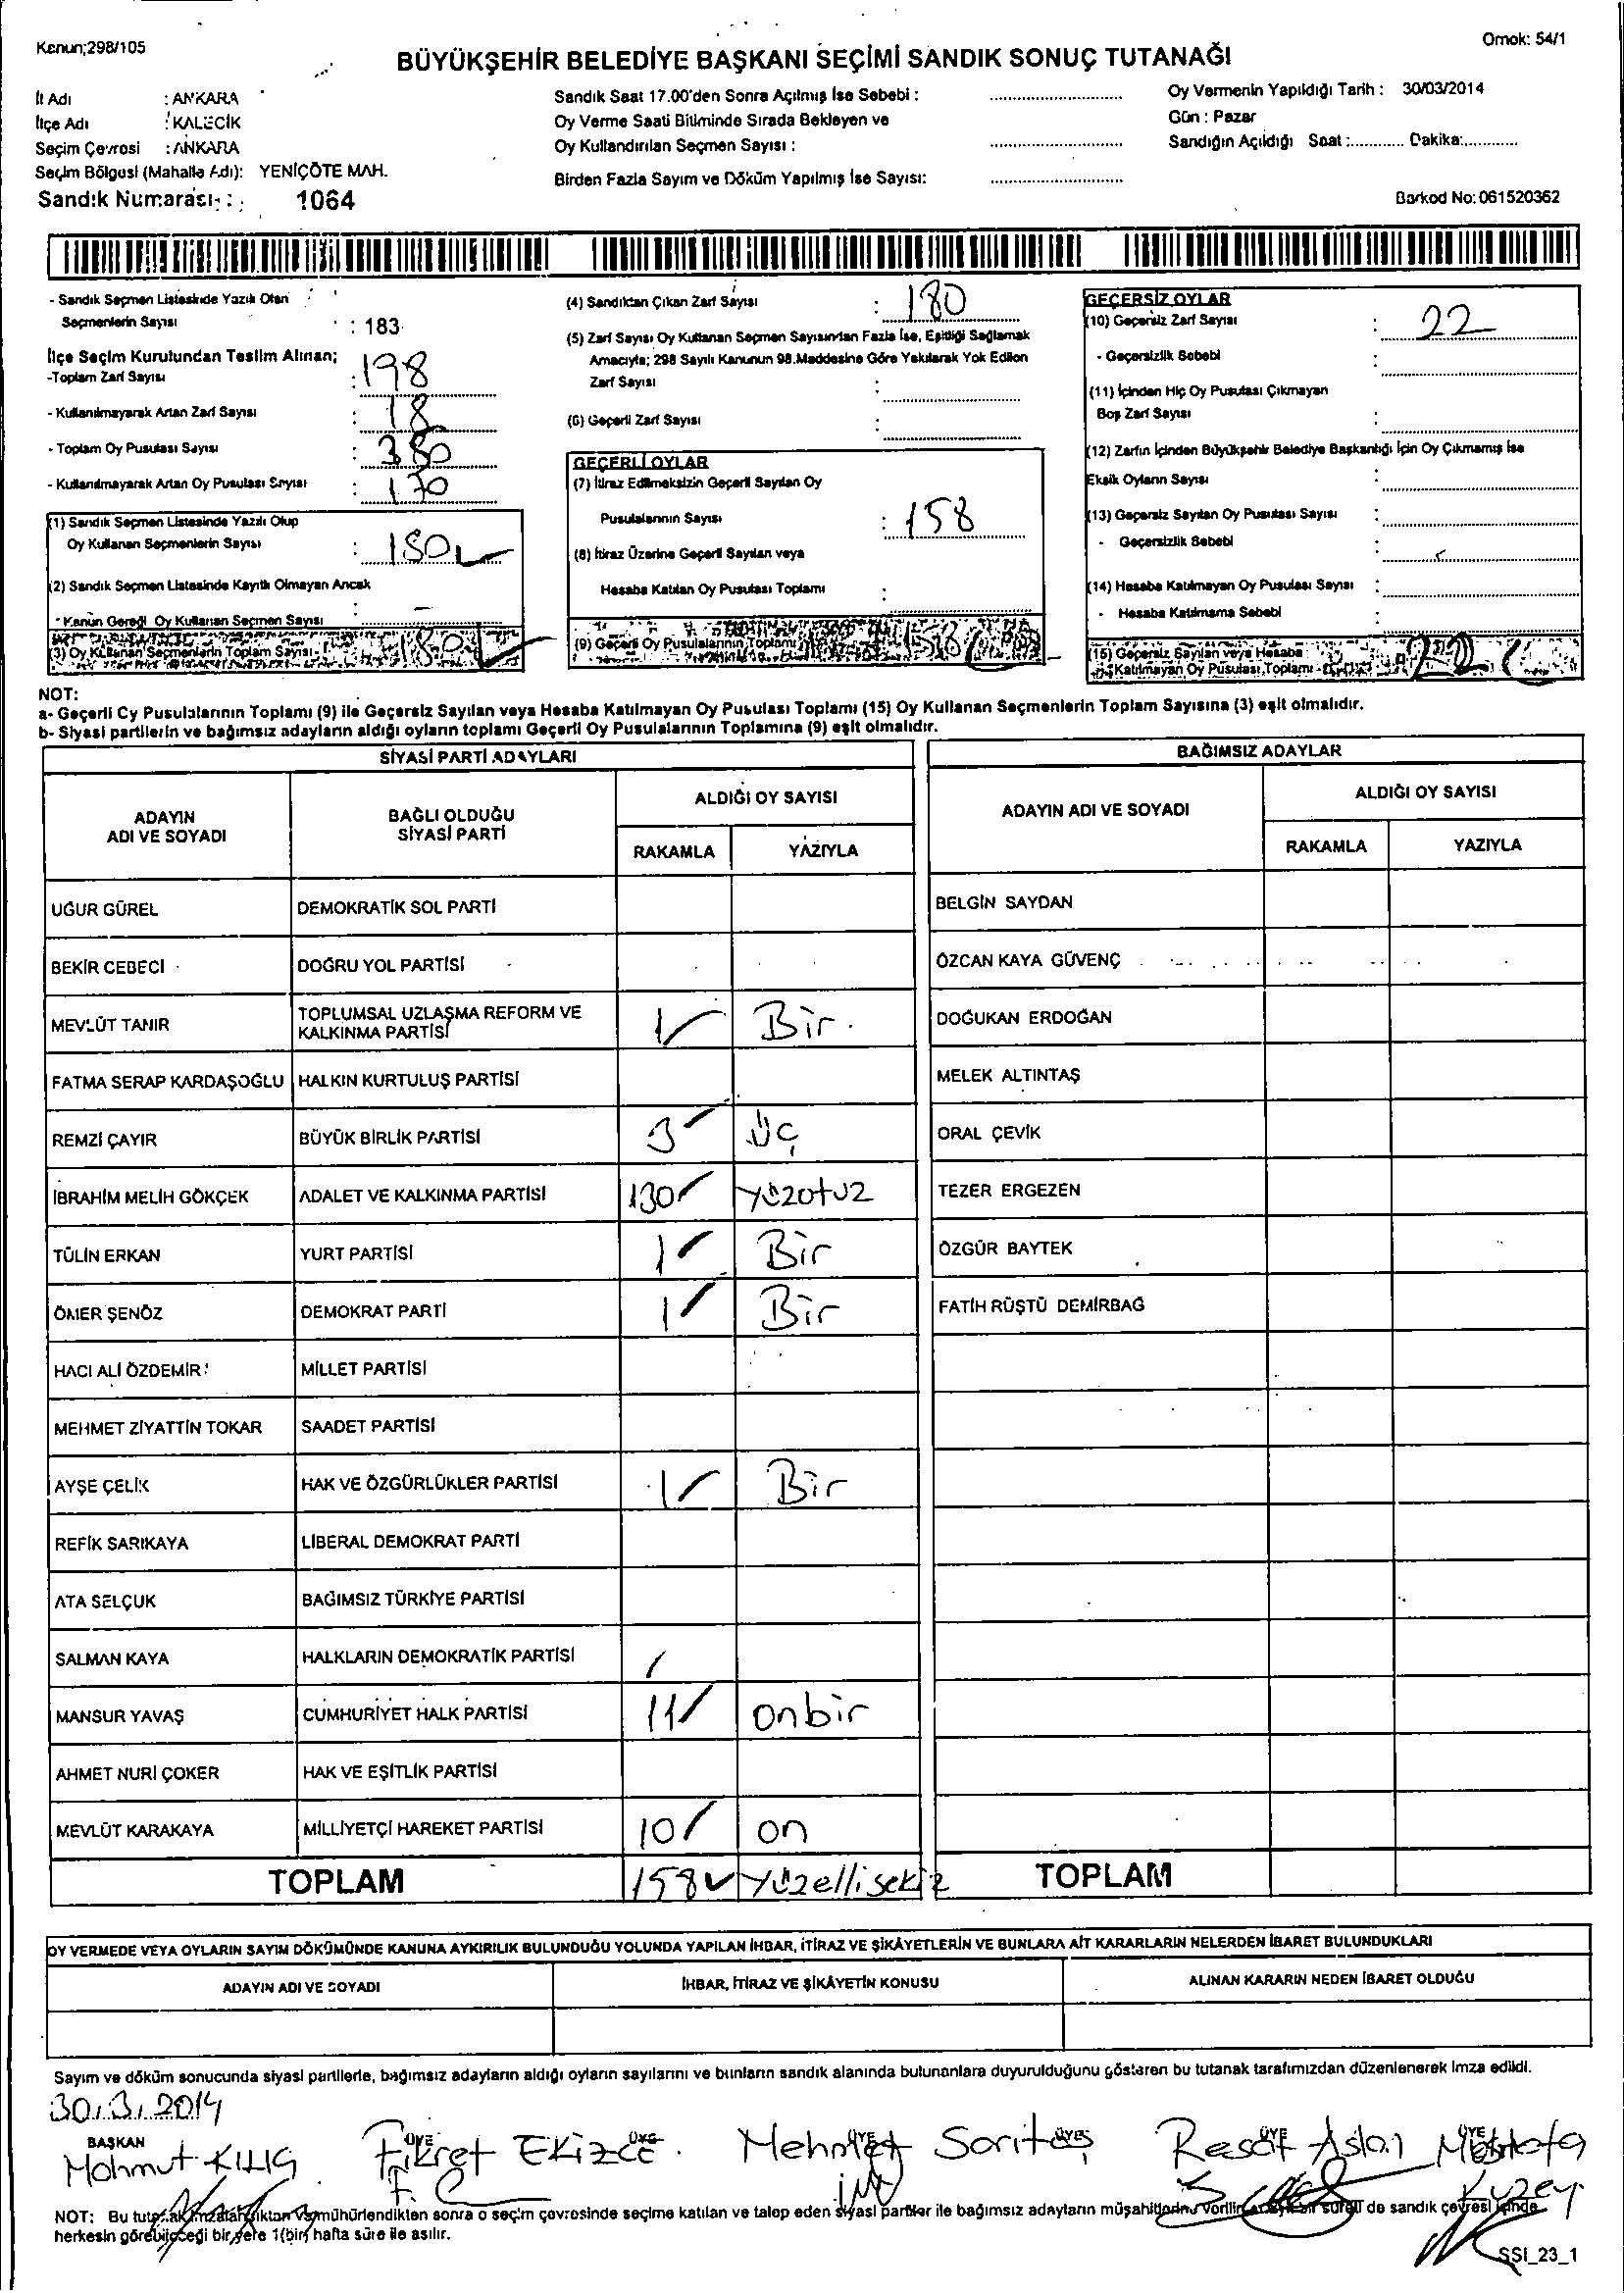 Kanun;298/105
Örnek: 54/1
BÜYÜKŞEHİR BELEDİYE BAŞKANI SEÇİMİ SANDIK SONUÇ TUTANAĞI
İl Adı : ANKARA
İlçe Adı : KALECİK
Seçim Çevresi : ANKARA
Seçim Bölgesi (Mahalle Adı): YENİÇÖTE MAH.
Sandık Numarası : 1064
Sandık Saat 17.00'den Sonra Açılmış İse Sebebi : ..............
Oy Verme Saati Bitiminde Sırada Bekleyen ve
Oy Kullandırılan Seçmen Sayısı : ..............
Birden Fazla Sayım ve Döküm Yapılmış İse Sayısı: ..............
Oy Vermenin Yapıldığı Tarih : 30/03/2014
Gün : Pazar
Sandığın Açıldığı Saat :............ Dakika:............
Barkod No: 061520362
- Sandık Seçmen Listesinde Yazılı Olan
Seçmenlerin Sayısı : 183
İlçe Seçim Kurulundan Teslim Alınan;
-Toplam Zarf Sayısı : 198
- Kullanılmayarak Artan Zarf Sayısı : 18
- Toplam Oy Pusulası Sayısı : 380
- Kullanılmayarak Artan Oy Pusulası Sayısı : 170
(1) Sandık Seçmen Listesinde Yazılı Olup
Oy Kullanan Seçmenlerin Sayısı : 180
(2) Sandık Seçmen Listesinde Kayıtlı Olmayan Ancak
- Kanun Gereği Oy Kullanan Seçmen Sayısı : -
(3) Oy Kullanan Seçmenlerin Toplam Sayısı 180
(4) Sandıktan Çıkan Zarf Sayısı : 180
(5) Zarf Sayısı Oy Kullanan Seçmen Sayısından Fazla İse, Eşitliği Sağlamak
Amacıyla; 298 Sayılı Kanunun 98.Maddesine Göre Yakılarak Yok Edilen
Zarf Sayısı :
(6) Geçerli Zarf Sayısı :
GEÇERLİ OYLAR
(7) İtiraz Edilmeksizin Geçerli Sayılan Oy
Pusulalarının Sayısı : 158
(8) İtiraz Üzerine Geçerli Sayılan veya
Hesaba Katılan Oy Pusulası Toplamı :
(9) Geçerli Oy Pusulalarının Toplamı 158
GEÇERSİZ OYLAR
(10) Geçersiz Zarf Sayısı : 22
- Geçersizlik Sebebi :
(11) İçinden Hiç Oy Pusulası Çıkmayan
Boş Zarf Sayısı :
(12) Zarfın İçinden Büyükşehir Belediye Başkanlığı İçin Oy Çıkmamış İse
Eksik Oyların Sayısı :
(13) Geçersiz Sayılan Oy Pusulası Sayısı :
- Geçersizlik Sebebi :
(14) Hesaba Katılmayan Oy Pusulası Sayısı :
- Hesaba Katılmama Sebebi :
(15) Geçersiz Sayılan veya Hesaba
Katılmayan Oy Pusulası Toplamı 22
NOT:
a- Geçerli Oy Pusulalarının Toplamı (9) ile Geçersiz Sayılan veya Hesaba Katılmayan Oy Pusulası Toplamı (15) Oy Kullanan Seçmenlerin Toplam Sayısına (3) eşit olmalıdır.
b- Siyasi partilerin ve bağımsız adayların aldığı oyların toplamı Geçerli Oy Pusulalarının Toplamına (9) eşit olmalıdır.
SİYASİ PARTİ ADAYLARI
ADAYIN ADI VE SOYADI BAĞLI OLDUĞU SİYASİ PARTİ ALDIĞI OY SAYISI
RAKAMLA YAZIYLA
UĞUR GÜREL DEMOKRATİK SOL PARTİ
BEKİR CEBECİ DOĞRU YOL PARTİSİ
MEVLÜT TANIR TOPLUMSAL UZLAŞMA REFORM VE KALKINMA PARTİSİ 1 Bir.
FATMA SERAP KARDAŞOĞLU HALKIN KURTULUŞ PARTİSİ
REMZİ ÇAYIR BÜYÜK BİRLİK PARTİSİ 3 Üç
İBRAHİM MELİH GÖKÇEK ADALET VE KALKINMA PARTİSİ 130 Yüzotuz
TÜLİN ERKAN YURT PARTİSİ 1 Bir
ÖMER ŞENÖZ DEMOKRAT PARTİ 1 Bir
HACI ALİ ÖZDEMİR MİLLET PARTİSİ
MEHMET ZİYATTİN TOKAR SAADET PARTİSİ
AYŞE ÇELİK HAK VE ÖZGÜRLÜKLER PARTİSİ 1 Bir
REFİK SARIKAYA LİBERAL DEMOKRAT PARTİ
ATA SELÇUK BAĞIMSIZ TÜRKİYE PARTİSİ
SALMAN KAYA HALKLARIN DEMOKRATİK PARTİSİ /
MANSUR YAVAŞ CUMHURİYET HALK PARTİSİ 11 onbir
AHMET NURİ ÇOKER HAK VE EŞİTLİK PARTİSİ
MEVLÜT KARAKAYA MİLLİYETÇİ HAREKET PARTİSİ 10 on
TOPLAM 158 Yüzellisekiz
BAĞIMSIZ ADAYLAR
ADAYIN ADI VE SOYADI ALDIĞI OY SAYISI
RAKAMLA YAZIYLA
BELGİN SAYDAN
ÖZCAN KAYA GÜVENÇ
DOĞUKAN ERDOĞAN
MELEK ALTINTAŞ
ORAL ÇEVİK
TEZER ERGEZEN
ÖZGÜR BAYTEK
FATİH RÜŞTÜ DEMİRBAĞ
TOPLAM
OY VERMEDE VEYA OYLARIN SAYIM DÖKÜMÜNDE KANUNA AYKIRILIK BULUNDUĞU YOLUNDA YAPILAN İHBAR, İTİRAZ VE ŞİKÂYETLERİN VE BUNLARA AİT KARARLARIN NELERDEN İBARET BULUNDUKLARI
ADAYIN ADI VE SOYADI İHBAR, İTİRAZ VE ŞİKÂYETİN KONUSU ALINAN KARARIN NEDEN İBARET OLDUĞU
Sayım ve döküm sonucunda siyasi partilerle, bağımsız adayların aldığı oyların sayılarını ve bunların sandık alanında bulunanlara duyurulduğunu gösteren bu tutanak tarafımızdan düzenlenerek imza edildi.
30.3.2014
BAŞKAN ÜYE ÜYE ÜYE ÜYE ÜYE ÜYE
Mahmut KILIÇ Fikret EKİZCE Mehmet Sarıtaş Reşat Aslan Mustafa Kuzey
NOT: Bu tutanak imzalandıktan ve mühürlendikten sonra o seçim çevresinde seçime katılan ve talep eden siyasi partiler ile bağımsız adayların müşahitlerine verilir, sureti de sandık çevresi içinde
herkesin görebileceği bir yere 1(bir) hafta süre ile asılır.
SSI_23_1